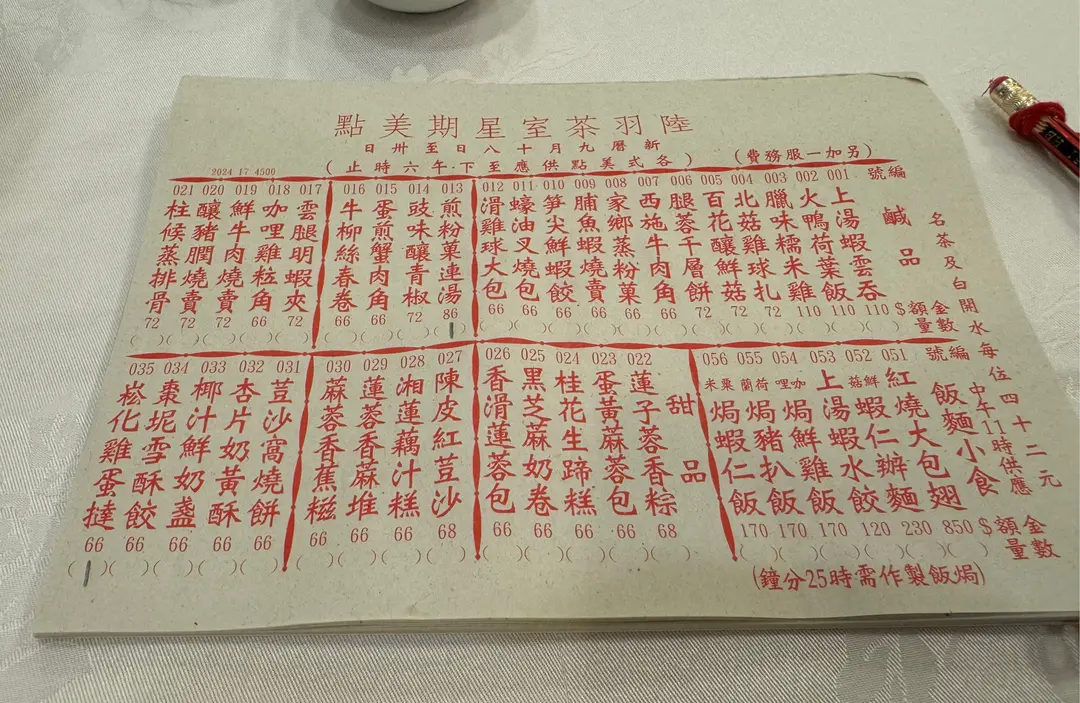 陸羽茶室星期美點
新曆九月十八日至卅日
(另加一服務費)
(各式美點供應至下午六時止)
2024 17 4500
名茶及白開水每位四十二元
編號
鹹品
金額 $
數量
001 上湯蝦雲吞 110
002 火鴨荷葉飯 110
003 臘味糯米雞 110
004 北菇雞球扎 72
005 百花釀鮮菇 72
006 腿蓉千層餅 72
007 西施牛肉角 66
008 家鄉蒸粉菓 66
009 脯魚蝦燒賣 66
010 笋尖鮮蝦餃 66
011 蠔油叉燒包 66
012 滑雞球大包 66
013 煎粉菓連湯 86
014 豉味釀青椒 72
015 蛋煎蟹肉角 66
016 牛柳絲春卷 66
017 雲腿明蝦夾 72
018 咖哩雞粒角 66
019 鮮牛肉燒賣 72
020 釀豬膶燒賣 72
021 柱候蒸排骨 72
編號
飯麵小食
中午11時供應
金額 $
數量
051 紅燒大包翅 850
052 鮮菇蝦仁辦麵 230
053 上湯蝦水餃 120
054 咖哩焗鮮雞飯 170
055 荷蘭焗豬扒飯 170
056 粟米焗蝦仁飯 170
(焗飯製作需時25分鐘)
甜品
022 蓮子蓉香粽 68
023 蛋黃蔴蓉包 66
024 桂花生蹄糕 66
025 黑芝蔴奶卷 66
026 香滑蓮蓉包 66
027 陳皮紅荳沙 68
028 湘蓮藕汁糕 66
029 蓮蓉香蔴堆 66
030 蔴蓉香蕉糍 66
031 荳沙窩燒餅 66
032 杏片奶黃酥 66
033 椰汁鮮奶盞 66
034 棗坭雪酥餃 66
035 崧化雞蛋撻 66